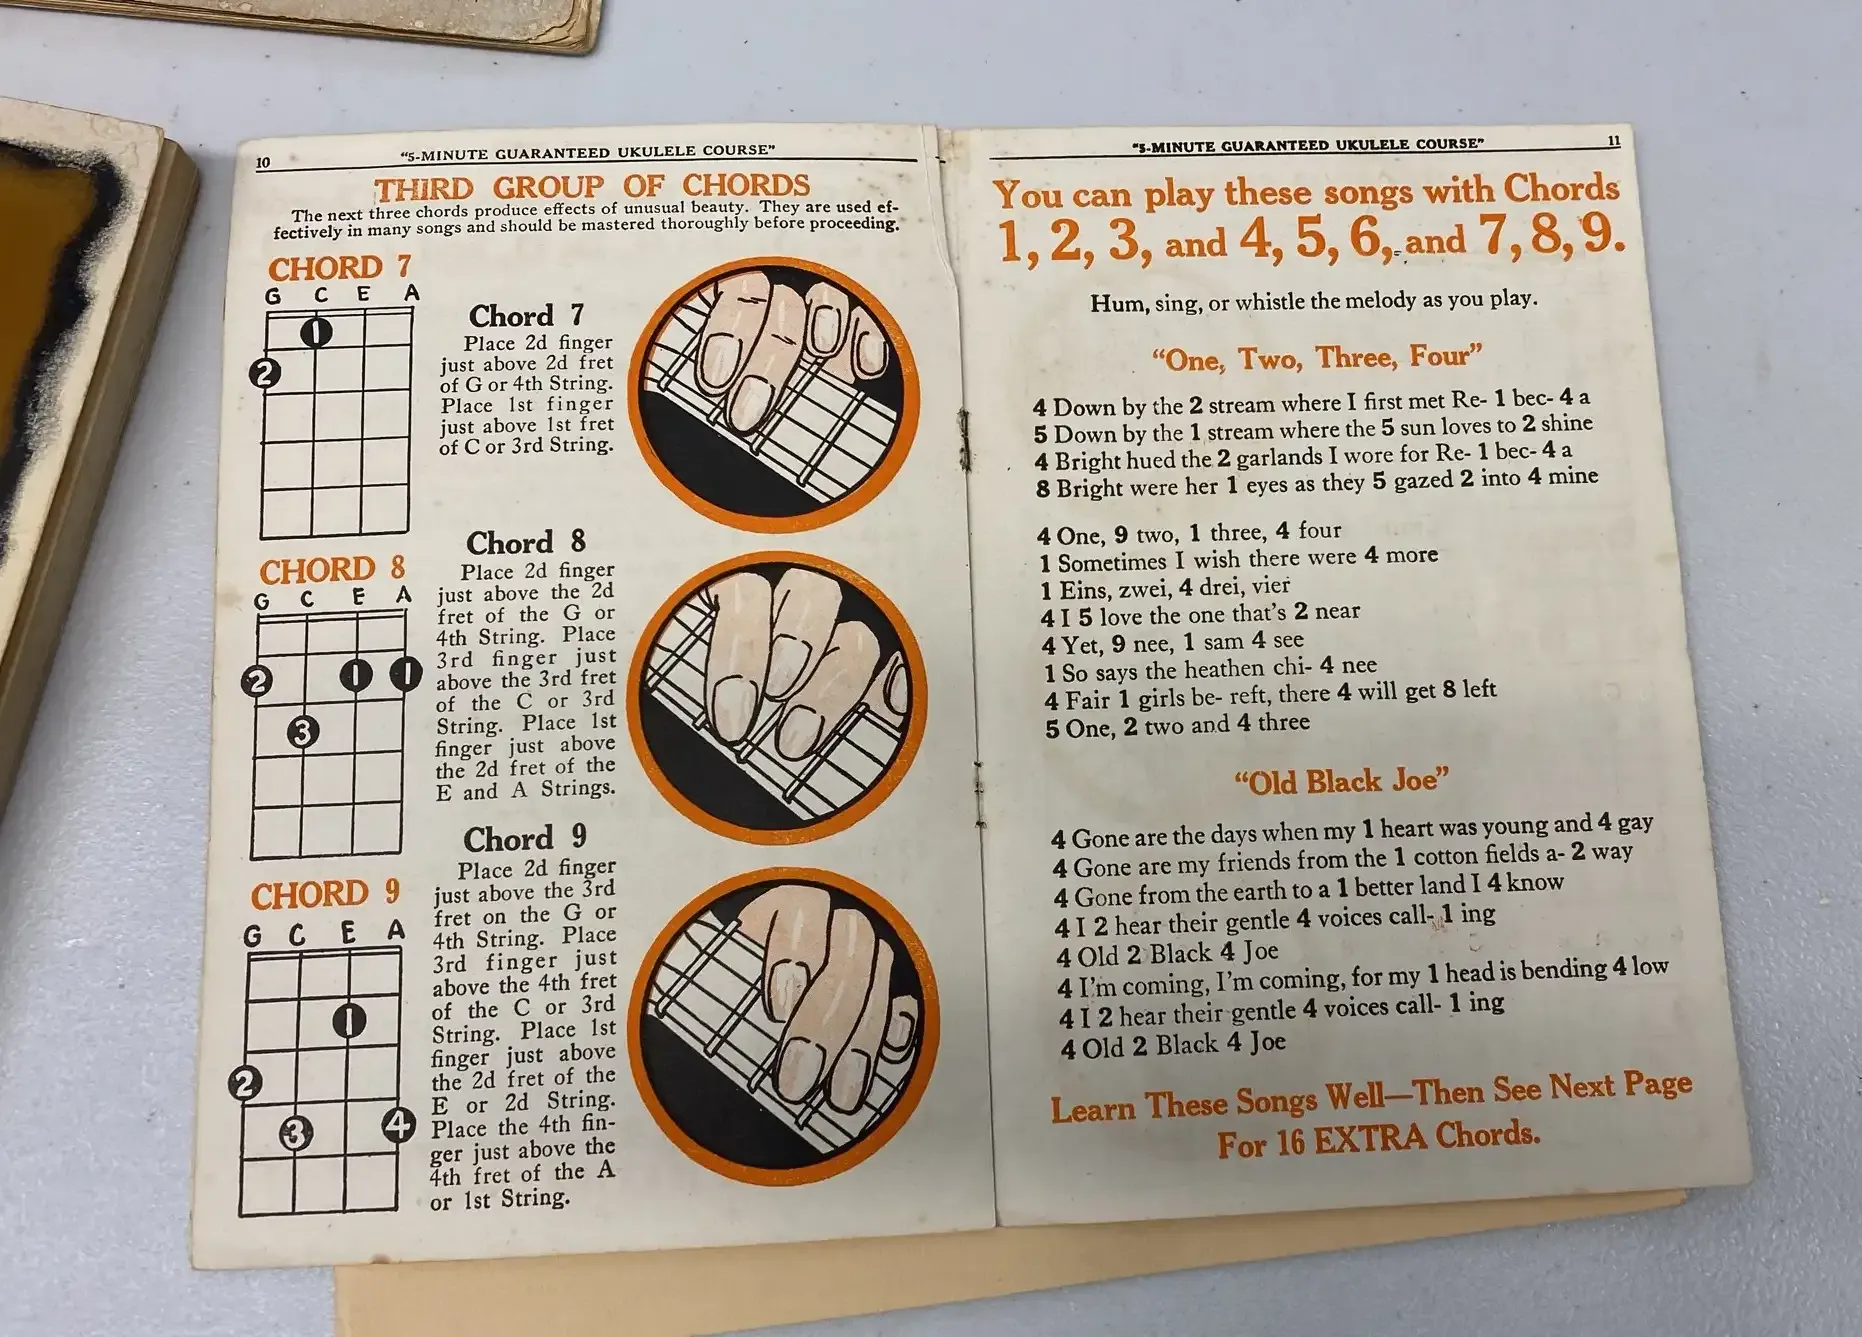 10
"5-MINUTE GUARANTEED UKULELE COURSE"
THIRD GROUP OF CHORDS
The next three chords produce effects of unusual beauty. They are used ef-
fectively in many songs and should be mastered thoroughly before proceeding.
CHORD 7
G C E A
1
2
Chord 7
Place 2d finger
just above 2d fret
of G or 4th String.
Place 1st finger
just above 1st fret
of C or 3rd String.
CHORD 8
G C E A
2 1 1
3
Chord 8
Place 2d finger
just above the 2d
fret of the G or
4th String. Place
3rd finger just
above the 3rd fret
of the C or 3rd
String. Place 1st
finger just above
the 2d fret of the
E and A Strings.
CHORD 9
G C E A
1
2
3 4
Chord 9
Place 2d finger
just above the 3rd
fret on the G or
4th String. Place
3rd finger just
above the 4th fret
of the C or 3rd
String. Place 1st
finger just above
the 2d fret of the
E or 2d String.
Place the 4th fin-
ger just above the
4th fret of the A
or 1st String.
"5-MINUTE GUARANTEED UKULELE COURSE"
11
You can play these songs with Chords
1, 2, 3, and 4, 5, 6, and 7, 8, 9.
Hum, sing, or whistle the melody as you play.
"One, Two, Three, Four"
4 Down by the 2 stream where I first met Re- 1 bec- 4 a
5 Down by the 1 stream where the 5 sun loves to 2 shine
4 Bright hued the 2 garlands I wore for Re- 1 bec- 4 a
8 Bright were her 1 eyes as they 5 gazed 2 into 4 mine
4 One, 9 two, 1 three, 4 four
1 Sometimes I wish there were 4 more
1 Eins, zwei, 4 drei, vier
4 I 5 love the one that's 2 near
4 Yet, 9 nee, 1 sam 4 see
1 So says the heathen chi- 4 nee
4 Fair 1 girls be- reft, there 4 will get 8 left
5 One, 2 two and 4 three
"Old Black Joe"
4 Gone are the days when my 1 heart was young and 4 gay
4 Gone are my friends from the 1 cotton fields a- 2 way
4 Gone from the earth to a 1 better land I 4 know
4 I 2 hear their gentle 4 voices call- 1 ing
4 Old 2 Black 4 Joe
4 I'm coming, I'm coming, for my 1 head is bending 4 low
4 I 2 hear their gentle 4 voices call- 1 ing
4 Old 2 Black 4 Joe
Learn These Songs Well—Then See Next Page
For 16 EXTRA Chords.